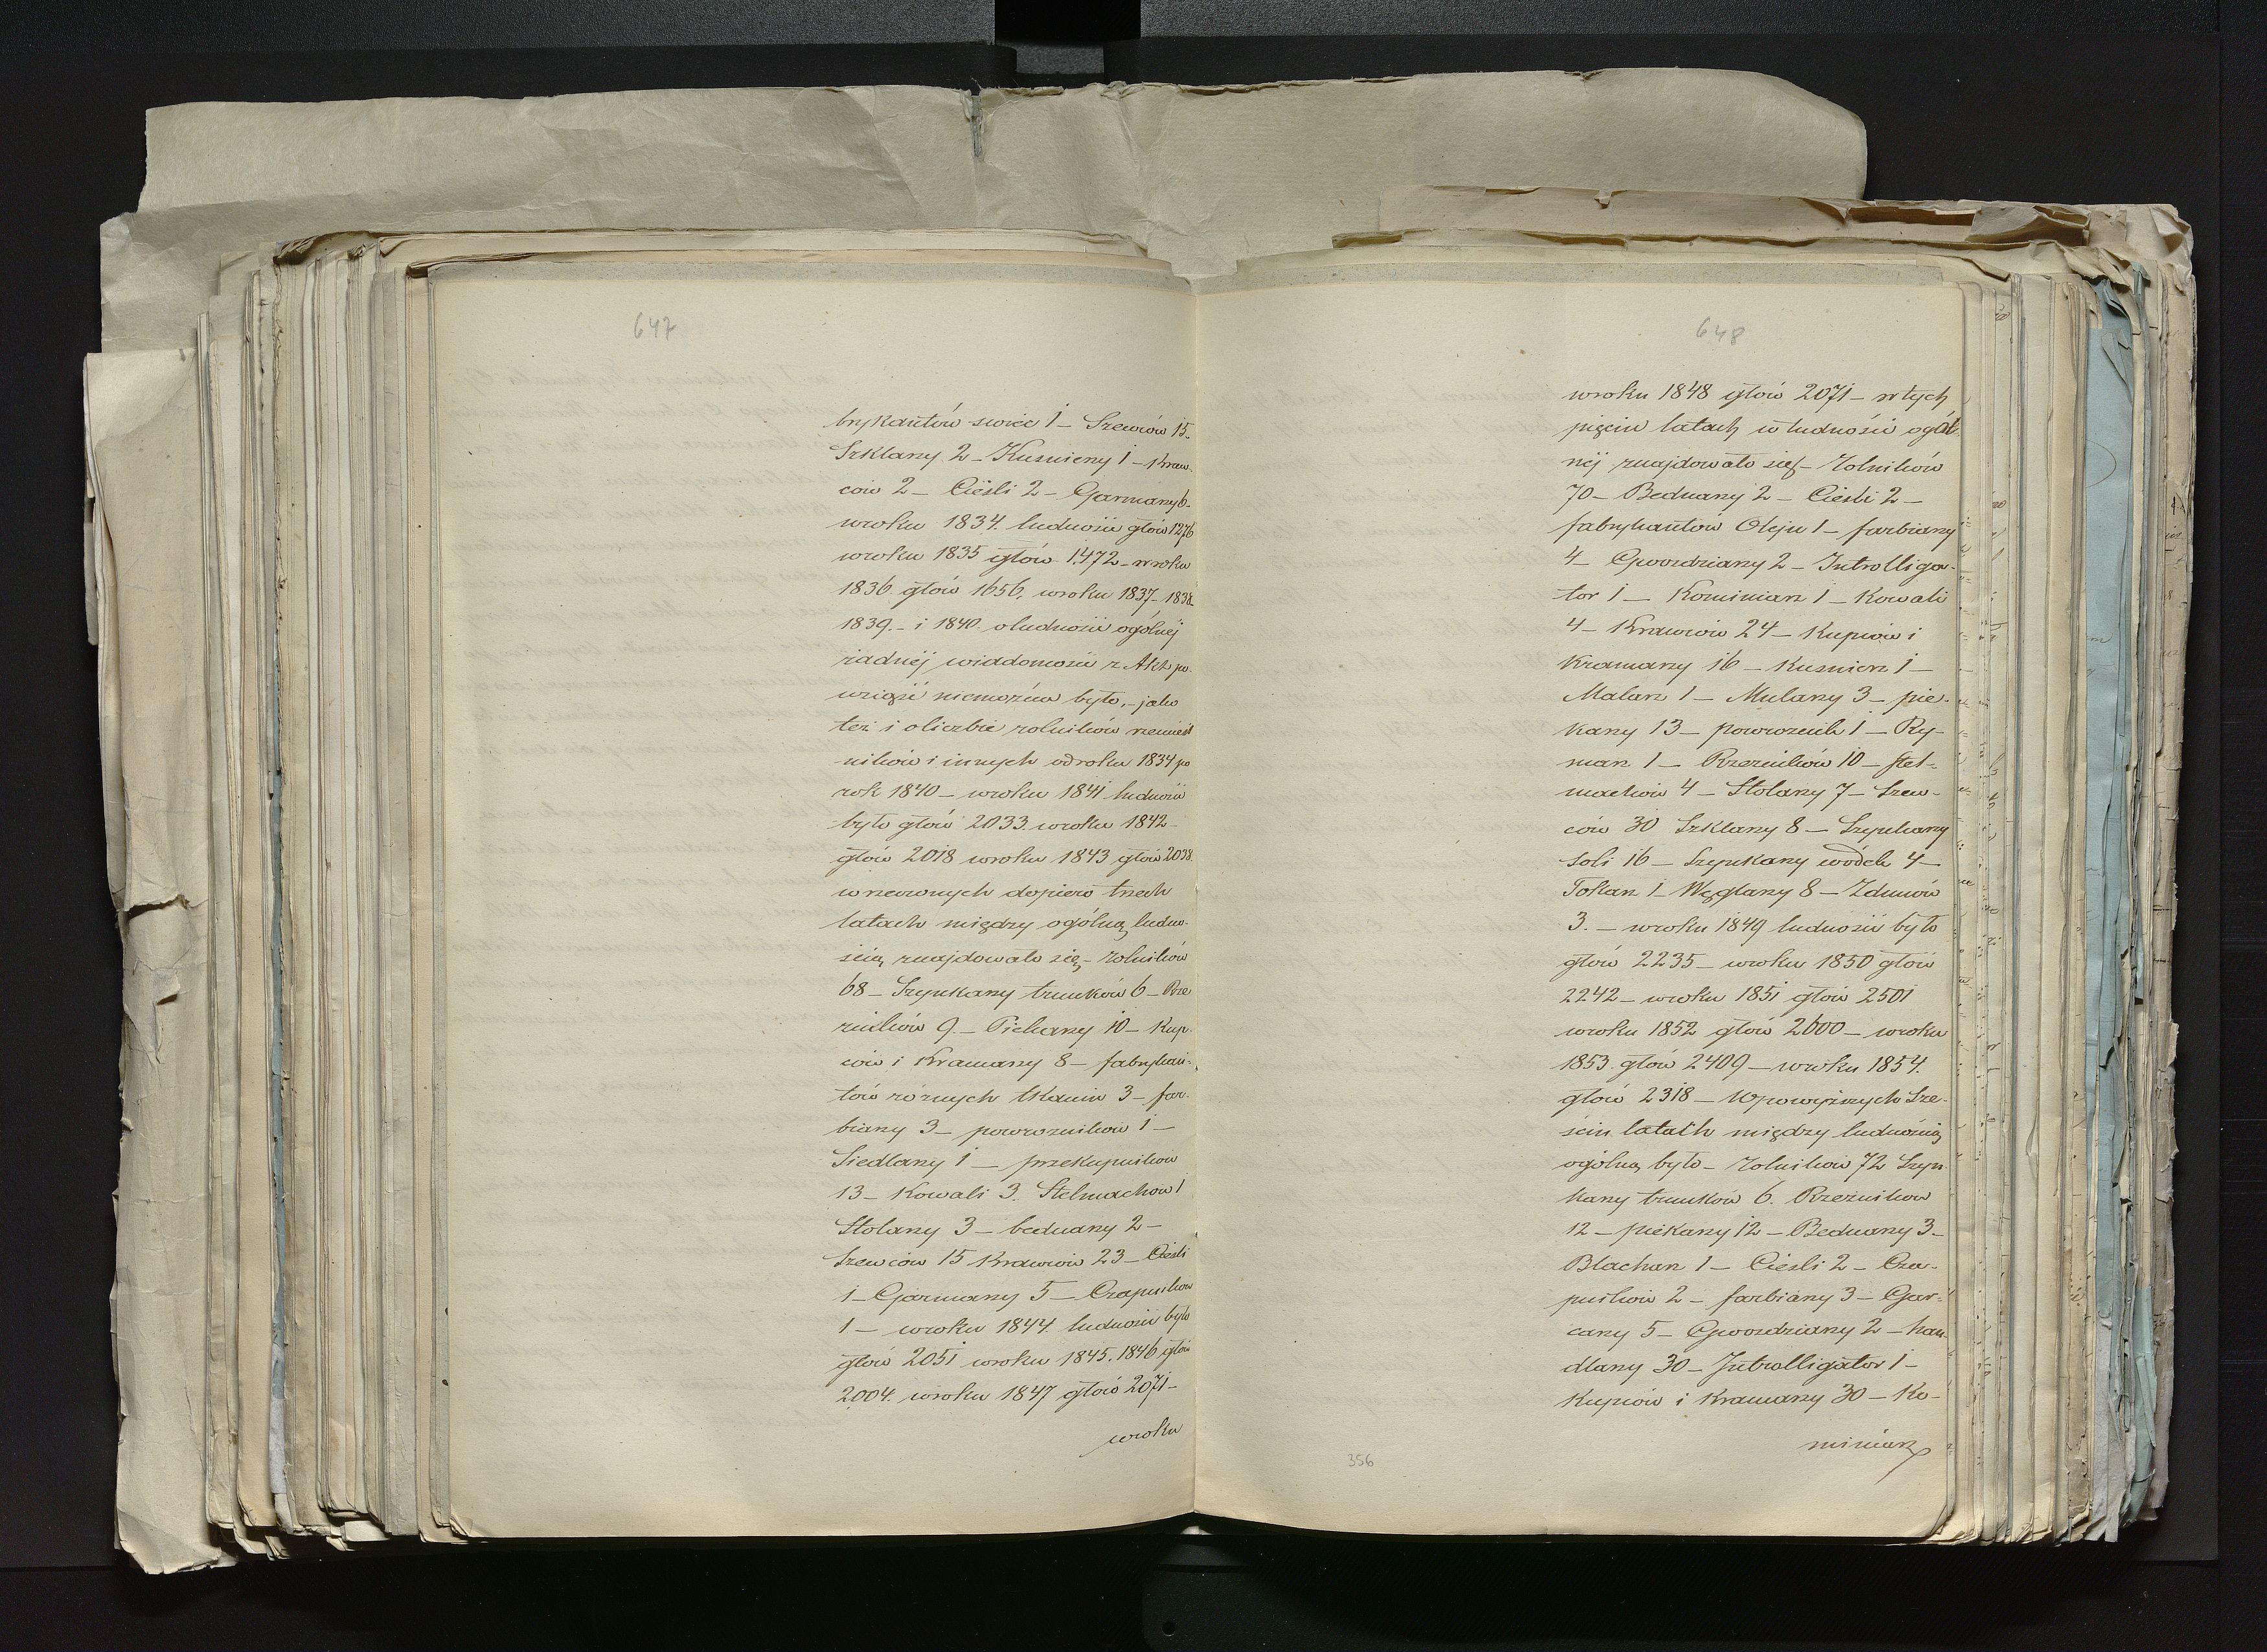 647
brykantów swiec 1 – Szewców 15.
Szklarzy 2 – Kusnierzy 1 – Kraw-
ców 2 – Cieśli 2 – Garnarzy 6.
wroku 1834. ludności głów 1276
wroku 1835 głów 1472 – wroku
1836. głów 1656, wroku 1837 – 1838
1839. – i 1840. o ludności ogólnéj
żadnéj wiadomości z Akt po-
wziąść niemożna było, – jako
też i oliczbie rolników rzemieśl
ników i innych odroku 1834 po
rok 1840 – wroku 1841 ludności
było głów 2033. wroku 1842 –
głów 2018 wroku 1843 głów 2038.
wrzeczonych dopiero trzech
latach między ogólną ludno-
ścią znajdowało się – rolników
68 – Szynkarzy trunków 6 – Rze
zników 9. – Piekarzy 10 – Kup-
ców i Kramarzy 8 – fabrykan-
tów różnych tkanin 3 – far-
biarzy 3 – powrozników 1 –
Siedlarzy 1 – przekupników
13 – Kowali 3. Stelmachów 1
Stolarzy 3 – bednarzy 2 –
Szewców 15 Krawców 23 – Cieśli
1 – Garnarzy 5 – Czapników
1 – wroku 1844. ludności było
głów 2051 wroku 1845. 1846 głów
2004. wroku 1847 głów 2071 –
wroku
648
wroku 1848 głów 2071 – wtych
pięciu latach w ludności ogól-
néj znajdowało się – Rolników
70 – Bednarzy 2 – Cieśli 2 –
fabrykantów Oleju 1 – farbiarzy
4 – Gwozdziarzy 2 – Introlliga-
tor 1 – Kominiarz 1 – Kowali
4 – Krawców 24 – Kupców i
Kramarzy 16 – Kusnierz 1 –
Malarz 1 – Mularzy 3 – pie-
karzy 13 – powroznik 1 – Ry-
marz 1 – Rzezników 10 – stel-
machów 4 – Stolarzy 7 – Szew-
ców 30 Szklarzy 8 – Szynkarzy
soli 16 – Szynkarzy wódek 4 –
Tokarz 1 – Węglarzy 8 – Zdunów
3. – wroku 1849 ludności było
głów 2235 – wroku 1850 głów
2242 – wroku 1851 głów 2501
wroku 1852 głów 2600 – wroku
1853. głów 2409 – wroku 1854.
głów 2318 – Wpowyższych Sze-
ściu latach między ludnością
ogólną było – Rolników 72 Szyn-
karzy trunków 6. Rzezników
12 – piekarzy 12 – Bednarzy 3 –
Blacharz 1 – Cieśli 2 – Cza-
pników 2 – farbiarzy 3 – Gar-
carzy 5 – Gwozdziarzy 2 – han-
dlarzy 30 – Introlligator 1 –
Kupców i Kramarzy 30 – Ko-
miniarz
356